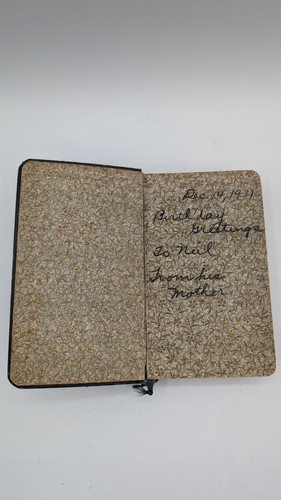 Dec. 14, 1931
Birthday
Greetings
To Neil
From his
Mother